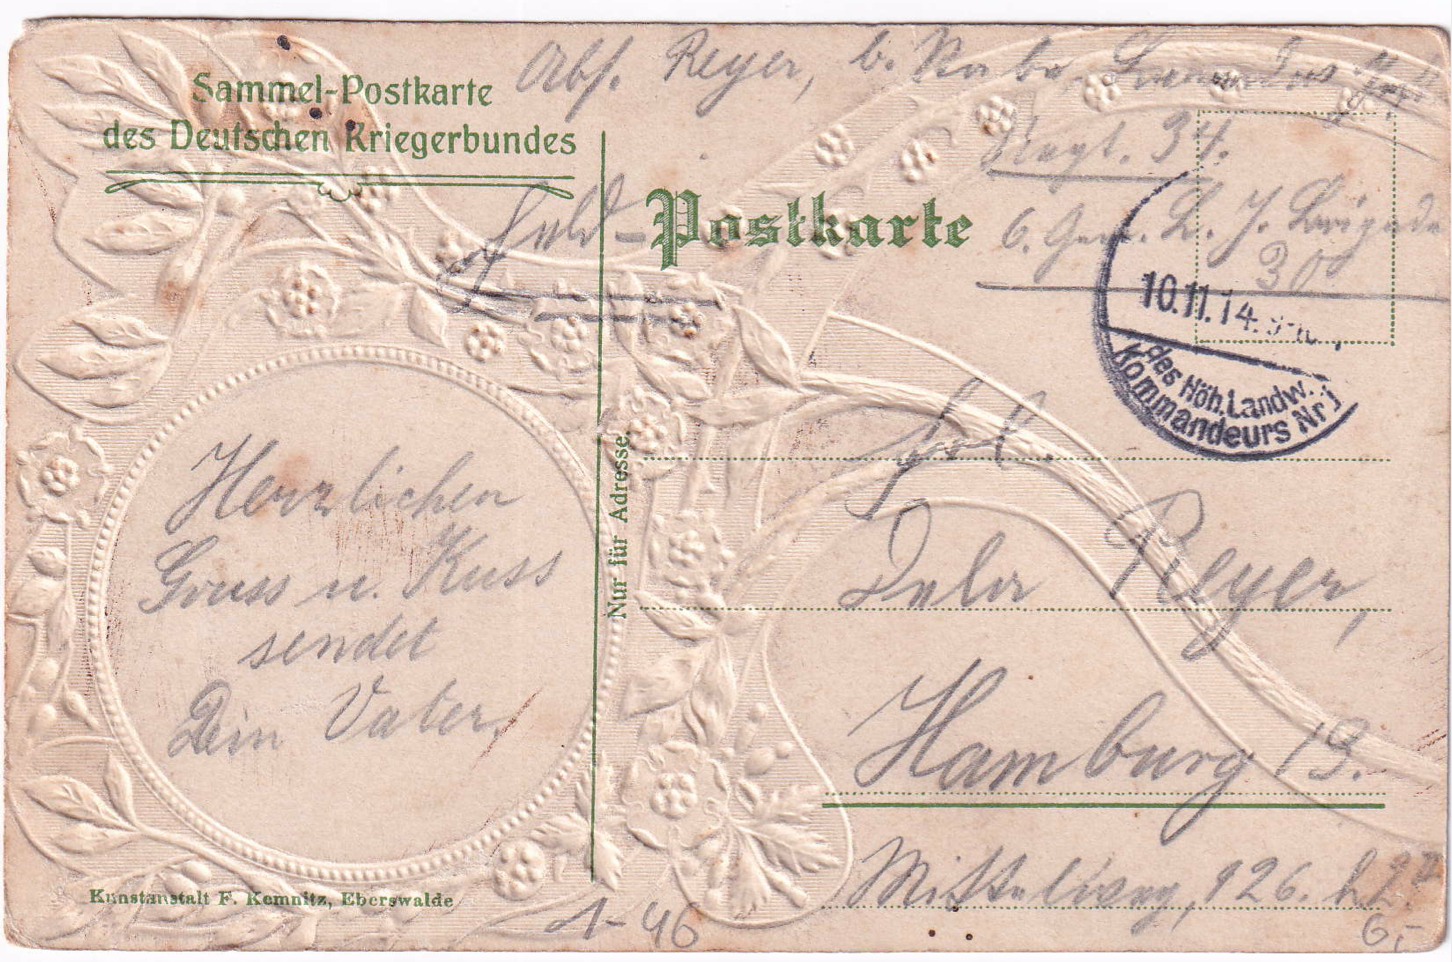 Sammel-Postkarte
des Deutschen Kriegerbundes
Abs. Reyer, b.
Regt. 34.
Feld-
Postkarte
6. Gem. L. J. Brigade
30
10.11.14.
des Höh. Landw.
Kommandeurs Nr 1
Nur für Adresse.
Herzlichen
Gruss u. Kuss
sendet
Dein Vater.
Frl.
Reyer,
Hamburg 13.
Mittelweg, 126.
Kunstanstalt F. Kemnitz, Eberswalde
A-46
6,-